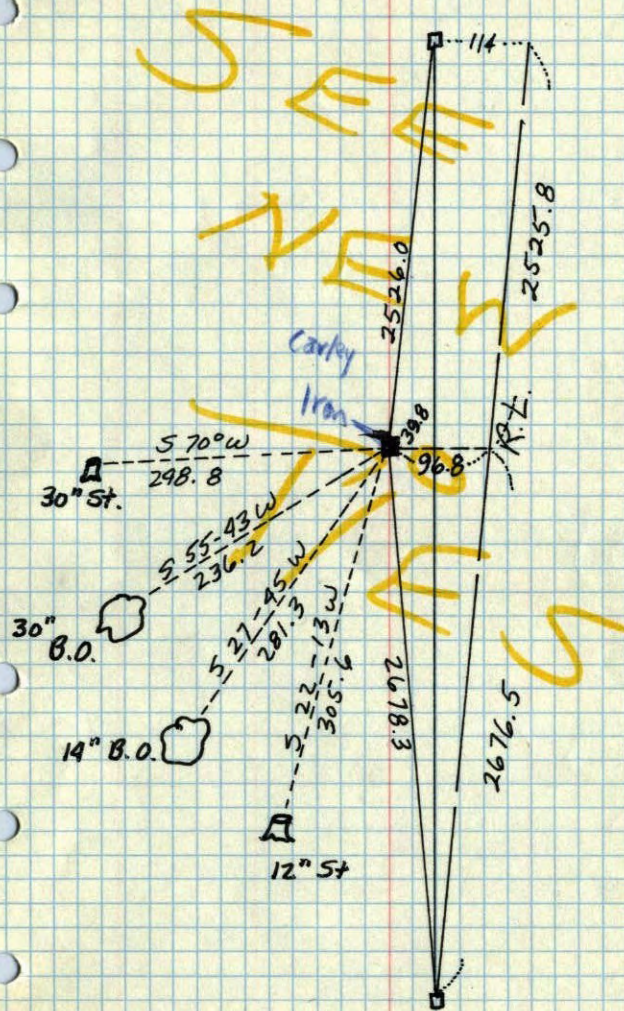 SEE
NEW
NOTES
114
2526.0
2525.8
Carley
Iron
39.8
96.8
R.L.
S 70° W
298.8
30" St.
S 55-43 W
236.2
30"
B.O.
S 27-45 W
281.3
14" B.O.
S 22-13 W
305.6
12" St
2678.3
2676.5